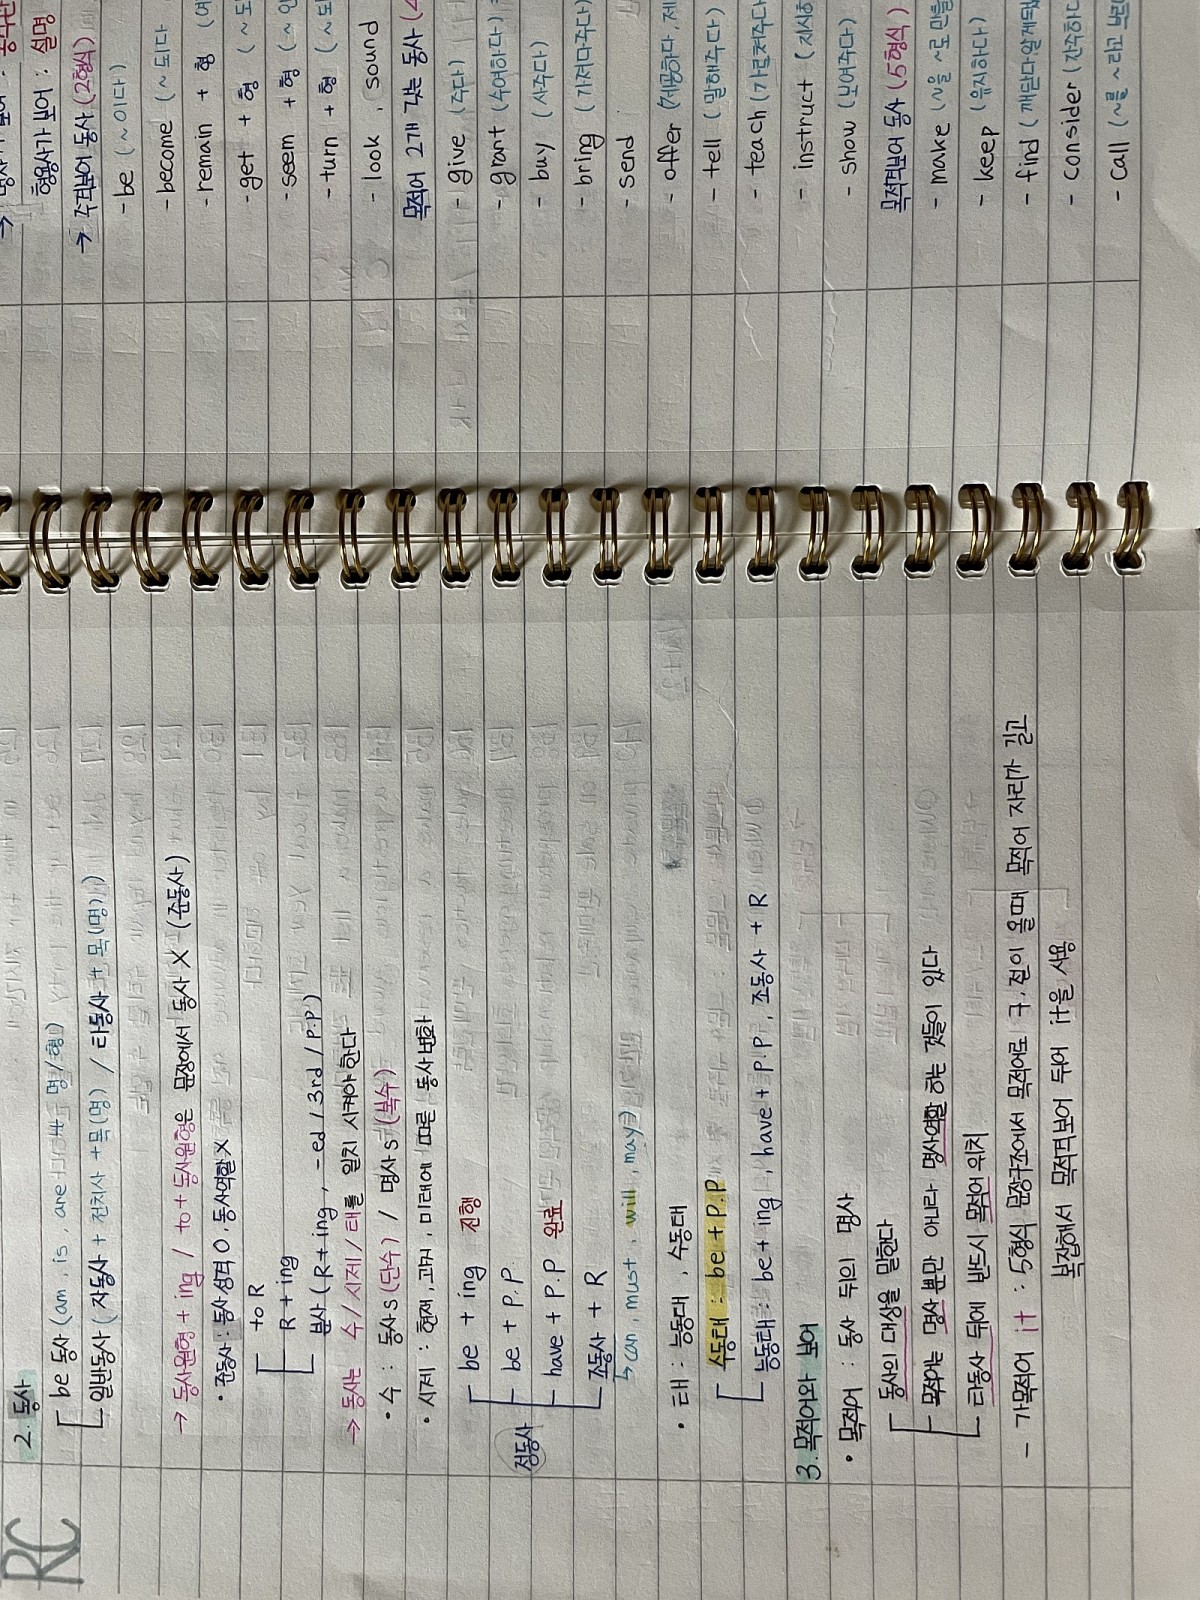 RC
2. 동사
be 동사 (am, is, are 명/형)
일반동사 ( 자동사 + 전치사 + 목(명) / 타동사 + 목(명))
→ 동사원형 + ing / to + 동사원형은 문장에서 동사 X (준동사)
• 준동사 : 동사 성격 O, 동사역할 X
to R
R + ing
분사 ( R + ing, -ed / 3rd / p.p)
→ 동사는 수/시제/태를 일치 시켜야 한다
• 수 : 동사 s (단수) / 명사 s (복수)
• 시제 : 현재, 과거, 미래에 따른 동사변화
정동사
be + ing 진행
be + p.p.
have + p.p 완료
조동사 + R
↳ can, must, will, may
• 태 : 능동태, 수동태
수동태 : be + p.p
능동태 : be + ing, have + p.p, 조동사 + R
3. 목적어와 보어
• 목적어 : 동사 뒤의 명사
동사의 대상을 말한다
목적어는 명사 뿐만 아니라 명사역할 하는 것들이 있다
타동사 뒤에 반드시 목적어 위치
- 가목적어 it : 5형식 문장구조에서 목적어로 구, 절이 올때 목적어 자리가 길고
복잡해서 목적보어 뒤어 it을 사용
형용사가 보어 : 설명
→ 주격보어 동사 (2형식)
- be (~이다)
- become (~ 되다
- remain + 형
- get + 형 (~
- seem + 형 (~
- turn + 형 (~
- look, sound
목적어 2개 갖는 동사
- give (주다)
- grant (수여하다)
- buy (사주다)
- bring (가져다주다)
- send
- offer (제공하다,
- tell (말해주다)
- teach (가르쳐주다
- instruct (지시하
- show (보여주다)
목적격보어 동사 (5형식)
- make (~을 ~로 만들
- keep (유지하다)
- find (깨닫다,
- consider (간주하다
- call (~를 ~라고